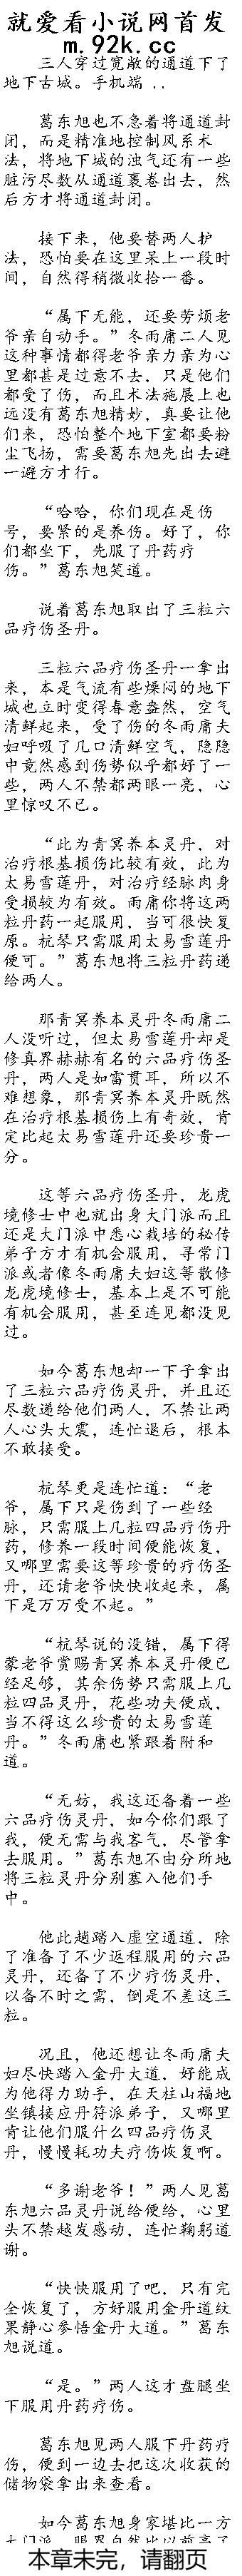 就爱看小说网首发
m.92k.cc
三人穿过宽敞的通道下了
地下古城。手机端 . .
葛东旭也不急着将通道封
闭，而是精准地控制风系术
法，将地下城的浊气还有一些
脏污尽数从通道裹卷出去，然
后方才将通道封闭。
接下来，他要替两人护
法，恐怕要在这里呆上一段时
间，自然得稍微收拾一番。
“属下无能，还要劳烦老
爷亲自动手。”冬雨庸二人见
这种事情都得老爷亲力亲为心
里都甚是过意不去，只是他们
都受了伤，而且术法施展上也
远没有葛东旭精妙，真要让他
们来，恐怕整个地下室都要粉
尘飞扬，需要葛东旭先出去避
一避方才行。
“哈哈，你们现在是伤
号，要紧的是养伤。好了，你
们都坐下，先服了丹药疗
伤。”葛东旭笑道。
说着葛东旭取出了三粒六
品疗伤圣丹。
三粒六品疗伤圣丹一拿出
来，本是气流有些燥闷的地下
城也立时变得春意盎然，空气
清鲜起来，受了伤的冬雨庸夫
妇呼吸了几口清鲜空气，隐隐
中竟然感到伤势似乎都好了一
些，两人不禁都两眼一亮，心
里惊叹不已。
“此为青冥养本灵丹，对
治疗根基损伤比较有效，此为
太易雪莲丹，对治疗经脉肉身
受损较为有效。雨庸你将这两
粒丹药一起服用，当可很快复
原。杭琴只需服用太易雪莲丹
便可。”葛东旭将三粒丹药递
给两人。
那青冥养本灵丹冬雨庸二
人没听过，但太易雪莲丹却是
修真界赫赫有名的六品疗伤圣
丹，两人是如雷贯耳，所以不
难想象，那青冥养本灵丹既然
在治疗根基损伤上有奇效，肯
定比起太易雪莲丹还要珍贵一
分。
这等六品疗伤圣丹，龙虎
境修士中也就出身大门派而且
还是大门派中悉心栽培的秘传
弟子方才有机会服用，寻常门
派或者像冬雨庸夫妇这等散修
龙虎境修士，基本上是不可能
有机会服用，甚至连见都没见
过。
如今葛东旭却一下子拿出
了三粒六品疗伤灵丹，并且还
尽数递给他们两人，不禁让两
人心头大震，连忙退后，根本
不敢接受。
杭琴更是连忙道：“老
爷，属下只是伤到了一些经
脉，只需服上几粒四品疗伤丹
药，修养一段时间便能恢复，
又哪里需要这等珍贵的疗伤圣
丹，还请老爷快快收起来，属
下是万万受不起。”
“杭琴说的没错，属下得
蒙老爷赏赐青冥养本灵丹便已
经足够，其余伤势只需服上几
粒四品灵丹，花些功夫便成，
当不得这么珍贵的太易雪莲
丹。”冬雨庸也紧跟着附和
道。
“无妨，我这还备着一些
六品疗伤灵丹，如今你们跟了
我，便无需与我客气，尽管拿
去服用。”葛东旭不由分所地
将三粒灵丹分别塞入他们手
中。
他此趟踏入虚空通道，除
了准备了不少返程服用的六品
灵丹，还备了不少疗伤灵丹，
以备不时之需，倒是不差这三
粒。
况且，他还想让冬雨庸夫
妇尽快踏入金丹大道，好能成
为他得力助手，在天柱山福地
坐镇接应丹符派弟子，又哪里
肯让他们服什么四品疗伤灵
丹，慢慢耗功夫疗伤恢复啊。
“多谢老爷！”两人见葛
东旭六品灵丹说给便给，心里
头不禁越发感动，连忙鞠躬道
谢。
“快快服用了吧，只有完
全恢复了，方好服用金丹道纹
果静心参悟金丹大道。”葛东
旭说道。
“是。”两人这才盘腿坐
下服用丹药疗伤。
葛东旭见两人服下丹药疗
伤，便到一边去把这次收获的
储物袋拿出来查看。
如今葛东旭身家堪比一方
大门派，眼界自然比以前高了
本章未完，请翻页